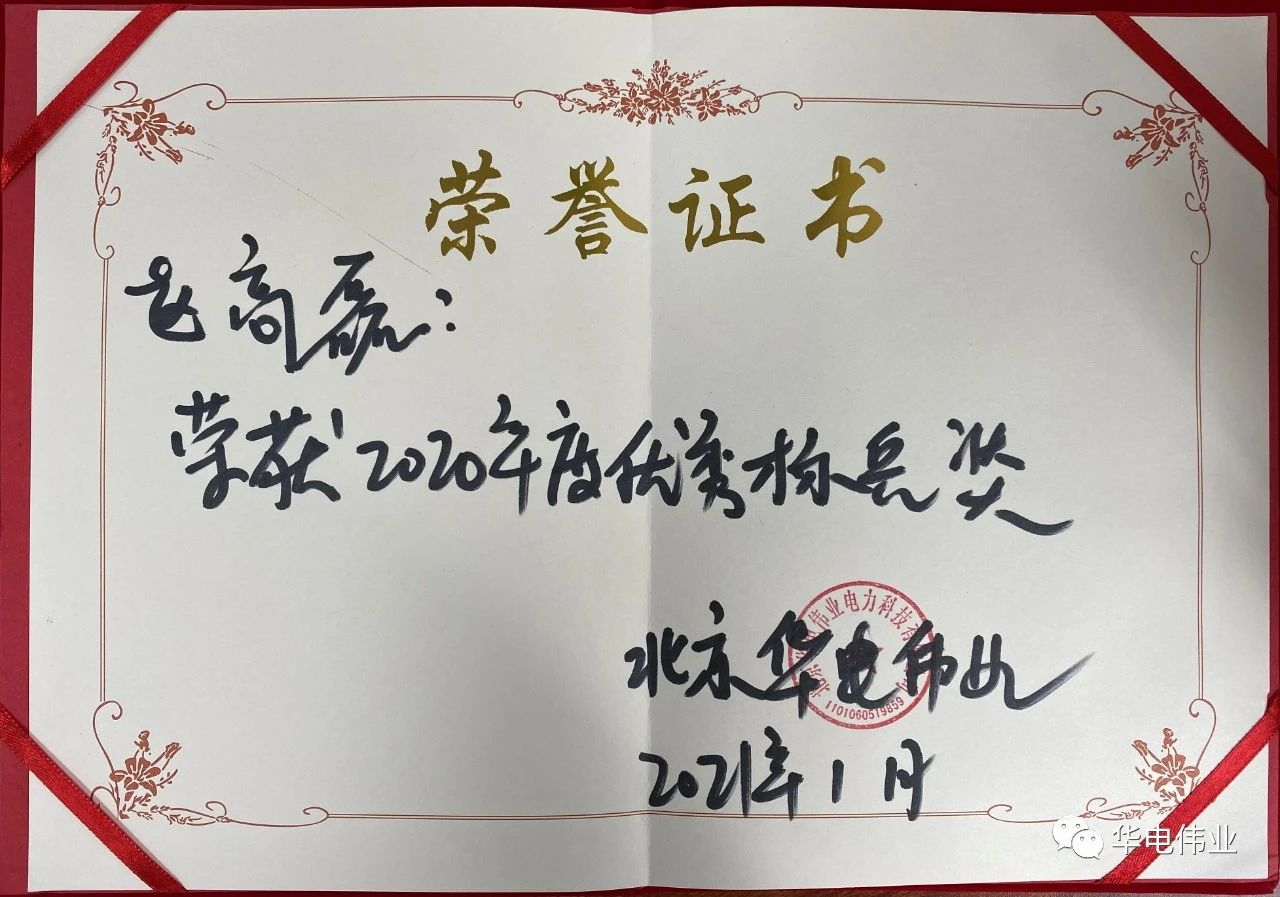 荣誉证书
高磊：
荣获2020年度优秀标兵奖
北京华电伟业
伟业电力科技有
1101060519859
2021年1月
华电伟业